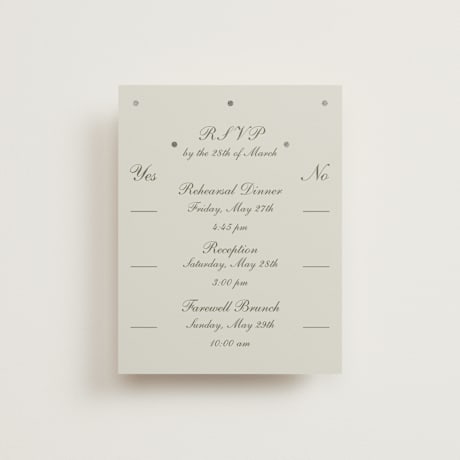 RSVP
by the 28th of March
Yes
No
Rehearsal Dinner
Friday, May 27th
4:45 pm
Reception
Saturday, May 28th
3:00 pm
Farewell Brunch
Sunday, May 29th
10:00 am